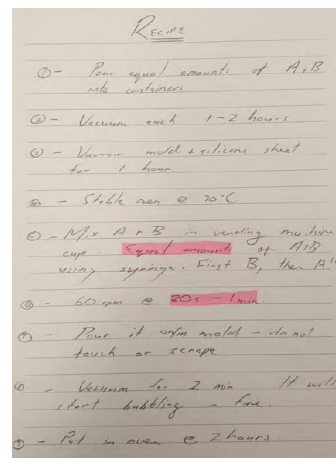 RECIPE
① - Pour equal amounts of A+B
into containers
② - Vacuum each 1-2 hours
③ - Vacuum mold + silicone sheet
for 1 hour
④ - Stable oven @ 70°C
⑤ - Mix A + B in vending machine
cups. Equal amounts of A+B
using syringe. First B, then A!
⑥ - 60 rpm @ 20s - 1min.
⑦ - Pour it onto mold - do not
touch or scrape
⑧ - Vacuum for 2 min It will
start bubbling - fine.
⑨ - Put in oven @ 2 hours.